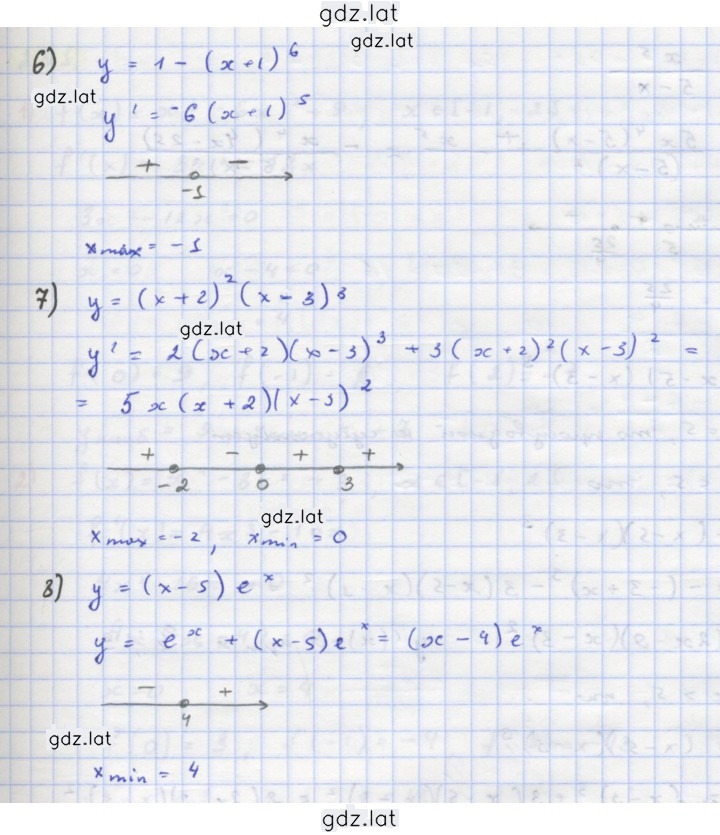 gdz.lat
gdz.lat
6) y = 1 - (x+1)^6
gdz.lat
y' = -6(x+1)^5
+ -
-1
x max = -1
7) y = (x+2)^2(x-3)^3
gdz.lat
y' = 2(x+2)(x-3)^3 + 3(x+2)^2(x-3)^2 =
= 5x(x+2)(x-3)^2
+ - + +
-2 0 3
gdz.lat
x max = -2, x min = 0
8) y = (x-5)e^x
y = e^x + (x-5)e^x = (x-4)e^x
- +
4
gdz.lat
x min = 4
gdz.lat